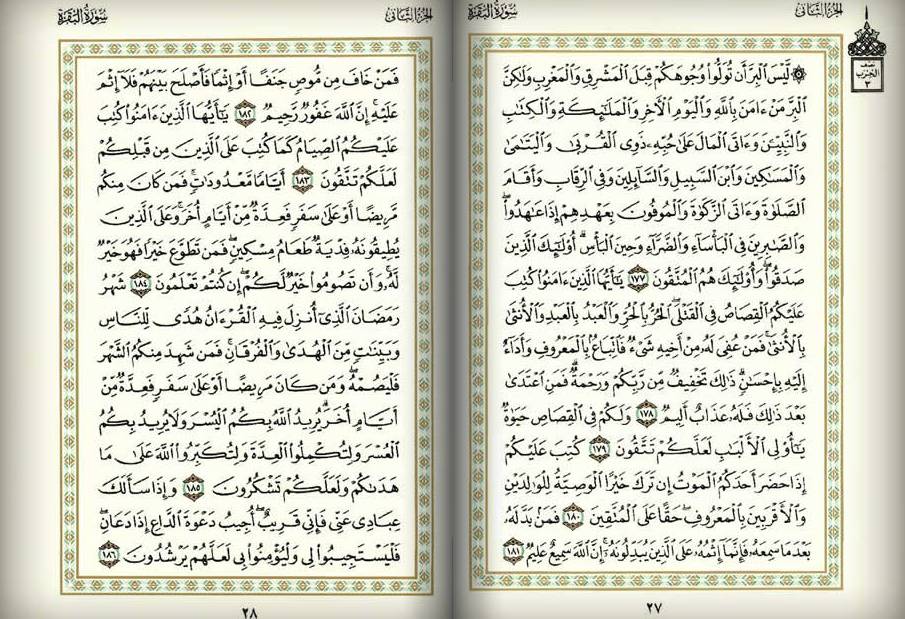 الجزء الثاني
سورة البقرة
نصف
الحزب
٣
۞ لَّيْسَ الْبِرَّ أَن تُوَلُّوا وُجُوهَكُمْ قِبَلَ الْمَشْرِقِ وَالْمَغْرِبِ وَلَٰكِنَّ
الْبِرَّ مَنْ ءَامَنَ بِاللَّهِ وَالْيَوْمِ الْآخِرِ وَالْمَلَٰئِكَةِ وَالْكِتَٰبِ
وَالنَّبِيِّۦنَ وَءَاتَى الْمَالَ عَلَىٰ حُبِّهِۦ ذَوِي الْقُرْبَىٰ وَالْيَتَٰمَىٰ
وَالْمَسَٰكِينَ وَابْنَ السَّبِيلِ وَالسَّآئِلِينَ وَفِي الرِّقَابِ وَأَقَامَ
الصَّلَوٰةَ وَءَاتَى الزَّكَوٰةَ وَالْمُوفُونَ بِعَهْدِهِمْ إِذَا عَٰهَدُوا ۖ
وَالصَّٰبِرِينَ فِي الْبَأْسَآءِ وَالضَّرَّآءِ وَحِينَ الْبَأْسِ ۗ أُولَٰئِكَ الَّذِينَ
صَدَقُوا ۖ وَأُولَٰئِكَ هُمُ الْمُتَّقُونَ ١٧٧ يَٰٓأَيُّهَا الَّذِينَ ءَامَنُوا كُتِبَ
عَلَيْكُمُ الْقِصَاصُ فِي الْقَتْلَى ۖ الْحُرُّ بِالْحُرِّ وَالْعَبْدُ بِالْعَبْدِ وَالْأُنثَىٰ
بِالْأُنثَىٰ ۚ فَمَنْ عُفِيَ لَهُۥ مِنْ أَخِيهِ شَيْءٌ فَاتِّبَاعٌ بِالْمَعْرُوفِ وَأَدَآءٌ
إِلَيْهِ بِإِحْسَٰنٍ ۗ ذَٰلِكَ تَخْفِيفٌ مِّن رَّبِّكُمْ وَرَحْمَةٌ ۗ فَمَنِ اعْتَدَىٰ
بَعْدَ ذَٰلِكَ فَلَهُۥ عَذَابٌ أَلِيمٌ ١٧٨ وَلَكُمْ فِي الْقِصَاصِ حَيَوٰةٌ
يَٰٓأُولِي الْأَلْبَٰبِ لَعَلَّكُمْ تَتَّقُونَ ١٧٩ كُتِبَ عَلَيْكُمْ
إِذَا حَضَرَ أَحَدَكُمُ الْمَوْتُ إِن تَرَكَ خَيْرًا الْوَصِيَّةُ لِلْوَٰلِدَيْنِ
وَالْأَقْرَبِينَ بِالْمَعْرُوفِ ۖ حَقًّا عَلَى الْمُتَّقِينَ ١٨٠ فَمَن بَدَّلَهُۥ
بَعْدَمَا سَمِعَهُۥ فَإِنَّمَآ إِثْمُهُۥ عَلَى الَّذِينَ يُبَدِّلُونَهُۥٓ ۚ إِنَّ اللَّهَ سَمِيعٌ عَلِيمٌ ١٨١
٢٧
الجزء الثاني
سورة البقرة
فَمَنْ خَافَ مِن مُّوصٍ جَنَفًا أَوْ إِثْمًا فَأَصْلَحَ بَيْنَهُمْ فَلَآ إِثْمَ
عَلَيْهِ ۚ إِنَّ اللَّهَ غَفُورٌ رَّحِيمٌ ١٨٢ يَٰٓأَيُّهَا الَّذِينَ ءَامَنُوا كُتِبَ
عَلَيْكُمُ الصِّيَامُ كَمَا كُتِبَ عَلَى الَّذِينَ مِن قَبْلِكُمْ
لَعَلَّكُمْ تَتَّقُونَ ١٨٣ أَيَّامًا مَّعْدُودَٰتٍ ۚ فَمَن كَانَ مِنكُم
مَّرِيضًا أَوْ عَلَىٰ سَفَرٍ فَعِدَّةٌ مِّنْ أَيَّامٍ أُخَرَ ۚ وَعَلَى الَّذِينَ
يُطِيقُونَهُۥ فِدْيَةٌ طَعَامُ مِسْكِينٍ ۖ فَمَن تَطَوَّعَ خَيْرًا فَهُوَ خَيْرٌ
لَّهُۥ ۚ وَأَن تَصُومُوا خَيْرٌ لَّكُمْ ۖ إِن كُنتُمْ تَعْلَمُونَ ١٨٤ شَهْرُ
رَمَضَانَ الَّذِيٓ أُنزِلَ فِيهِ الْقُرْءَانُ هُدًى لِّلنَّاسِ
وَبَيِّنَٰتٍ مِّنَ الْهُدَىٰ وَالْفُرْقَانِ ۚ فَمَن شَهِدَ مِنكُمُ الشَّهْرَ
فَلْيَصُمْهُ ۖ وَمَن كَانَ مَرِيضًا أَوْ عَلَىٰ سَفَرٍ فَعِدَّةٌ مِّنْ
أَيَّامٍ أُخَرَ ۗ يُرِيدُ اللَّهُ بِكُمُ الْيُسْرَ وَلَا يُرِيدُ بِكُمُ
الْعُسْرَ وَلِتُكْمِلُوا الْعِدَّةَ وَلِتُكَبِّرُوا اللَّهَ عَلَىٰ مَا
هَدَىٰكُمْ وَلَعَلَّكُمْ تَشْكُرُونَ ١٨٥ وَإِذَا سَأَلَكَ
عِبَادِي عَنِّي فَإِنِّي قَرِيبٌ ۖ أُجِيبُ دَعْوَةَ الدَّاعِ إِذَا دَعَانِ ۖ
فَلْيَسْتَجِيبُوا لِي وَلْيُؤْمِنُوا بِي لَعَلَّهُمْ يَرْشُدُونَ ١٨٦
٢٨